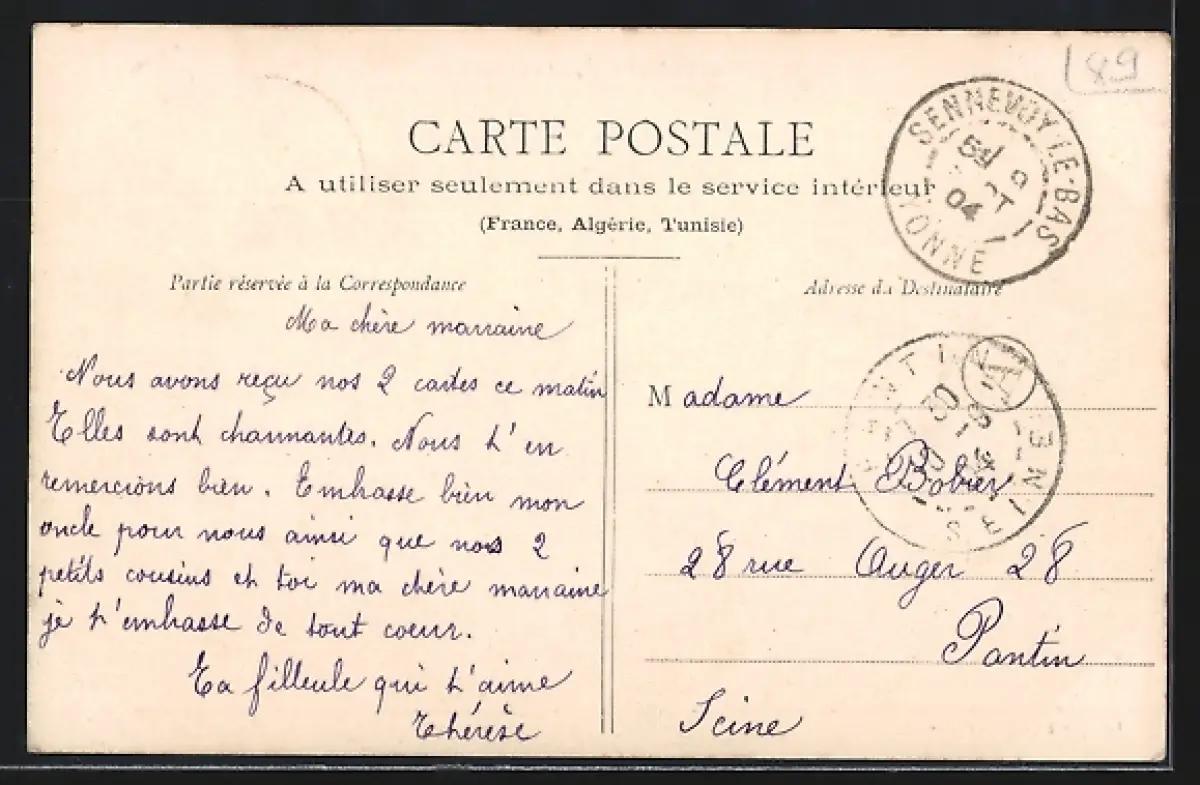 89
CARTE POSTALE
A utiliser seulement dans le service intérieur
(France, Algérie, Tunisie)
SENNEVOY-LE-BAS
04
YONNE
Partie réservée à la Correspondance
Ma chère marraine
Nous avons reçu nos 2 cartes ce matin
Elles sont charmantes. Nous t'en
remercions bien. Embrasse bien mon
oncle pour nous ainsi que nos 2
petits cousins et toi ma chère marraine
je t'embrasse de tout coeur.
Ta filleule qui t'aime
Thérèse
Adresse du Destinataire
PANTIN
A
30
SEINE
Madame
Clément Bobier
28 rue Auger 28
Pantin
Seine